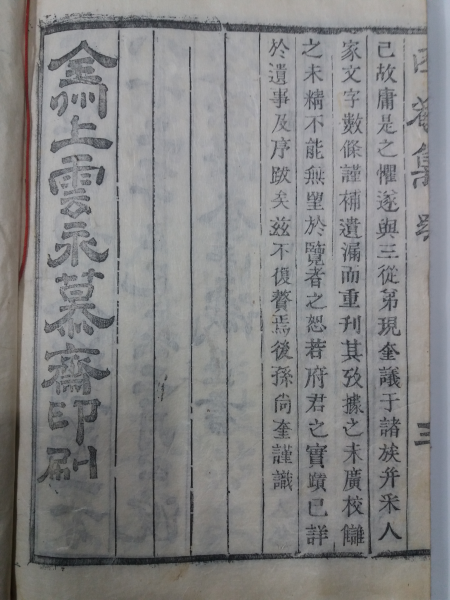 己故庸是之懼遂與三從弟現奎議于諸族幷采人
家文字數條謹補遺漏而重刊其攷據之未廣校讎
之未精不能無望於覽者之恕若府君之實蹟已詳
於遺事及序跋矣玆不復贅焉後孫尙奎謹識
金州上雲永慕齋印刷